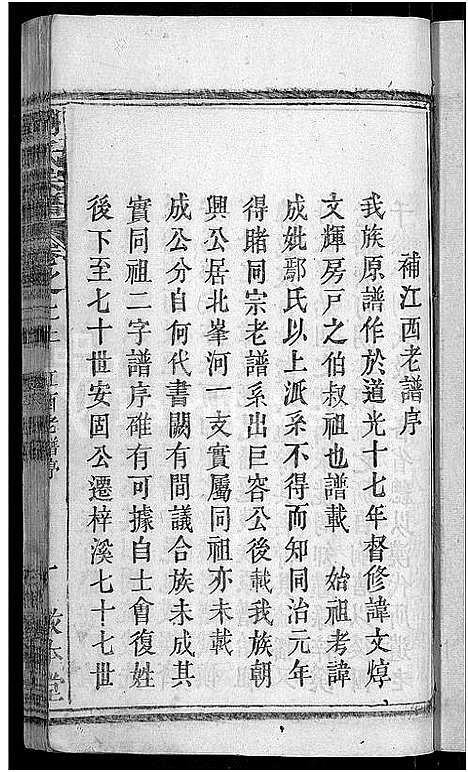 補江西老譜序
我族原譜作於道光十七年督修諱文焞
文輝房戸之伯叔祖也譜載　始祖考諱
成妣鄢氏以上派系不得而知同治元年
得睹同宗老譜系出巨容公後載我族朝
興公居北峯河一支實屬同祖亦未載
成公分自何代書闕有間議合族未成其
實同祖二字譜序碓有可據自士會復姓
後下至七十世安固公遷梓溪七十七世
江西老譜序